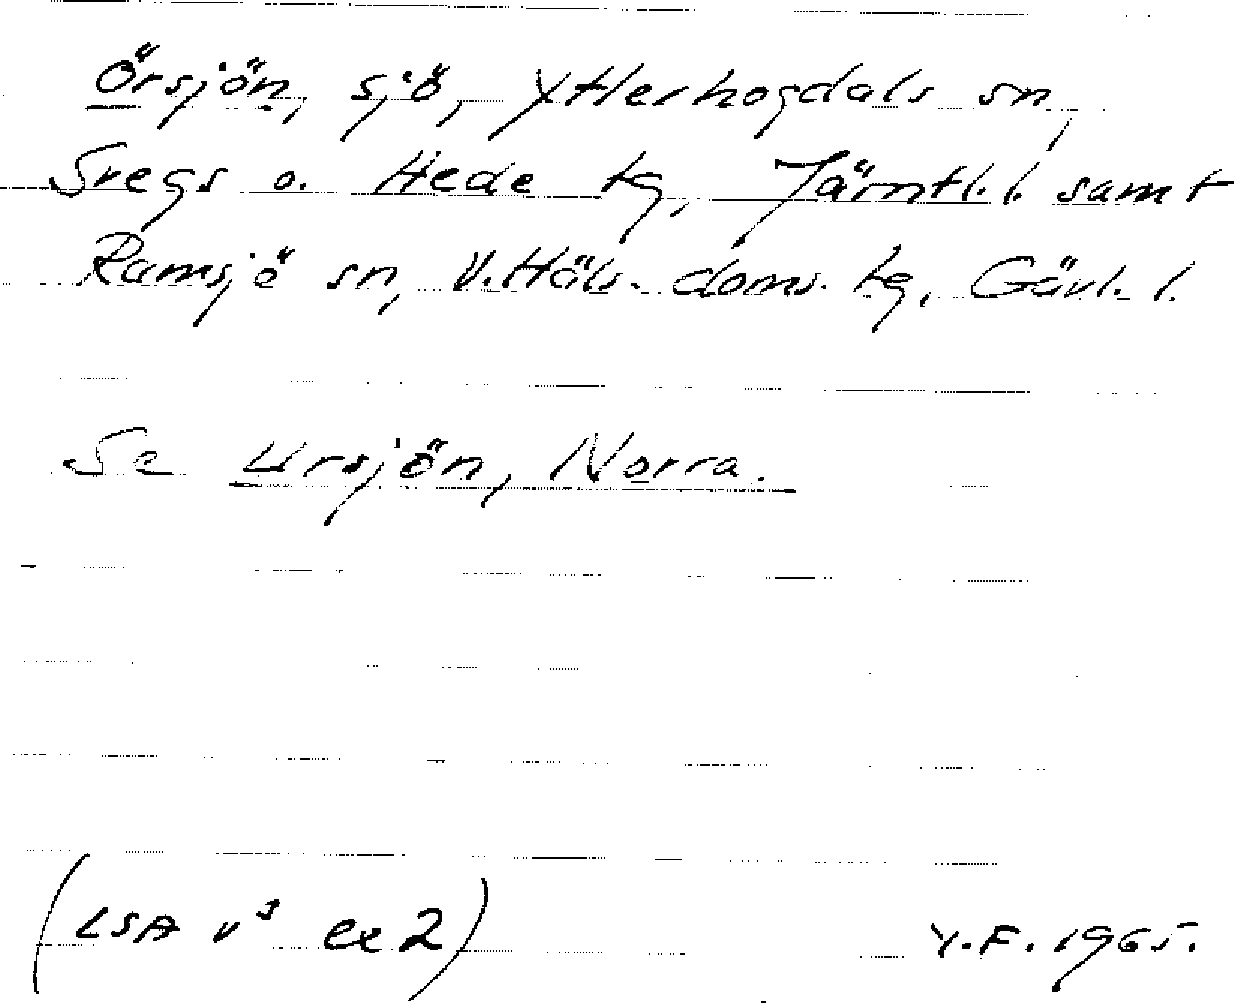 Örsjön, sjö, Ytterhogdals sn,
Svegs o. Hede tg, Jämtl. l. samt
Ramsjö sn, V. Häls. doms. tg, Gävl. l.
Se Ursjön, Norra.
(LSA v³ ex 2) Y.F. 1965.